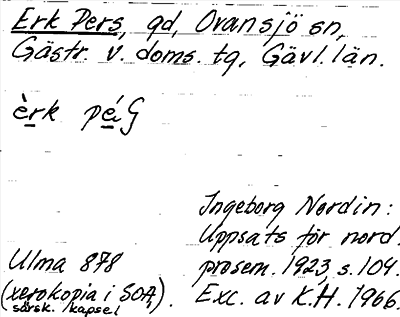 Erk Pers, gd, Ovansjö sn,
Gästr. v. doms. tg, Gävl. län.
èrk péG
Ingeborg Nordin:
Uppsats för nord.
prosem. 1923, s. 104.
Exc. av K.H. 1966.
Ulma 878
(xerokopia i SOA,
särsk. kapsel).